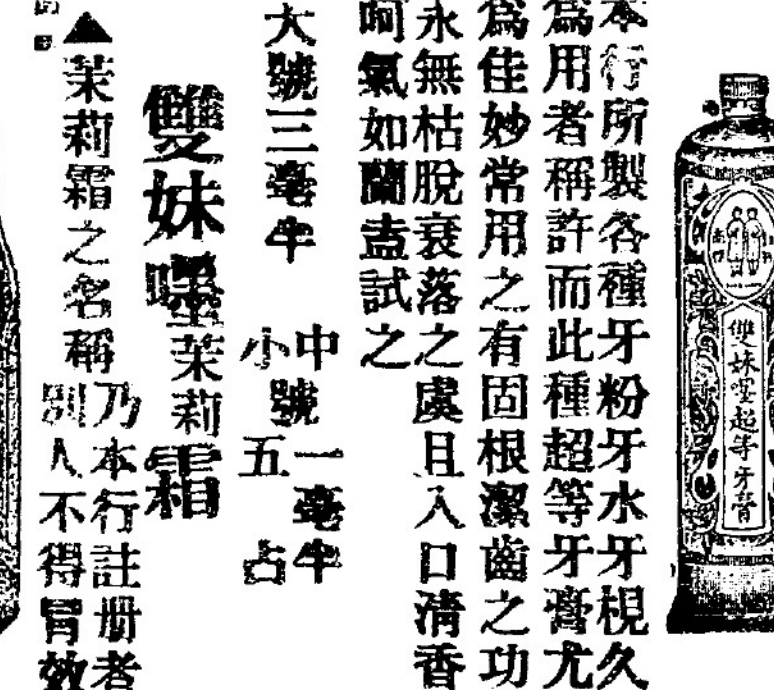 雙妹嚜超等牙膏
本行所製各種牙粉牙水牙梘久
爲用者稱許而此種超等牙膏尤
爲佳妙常用之有固根潔齒之功
永無枯脫衰落之處且入口清香
呵氣如蘭盍試之
中號一毫半
大號三毫半
小號五占
雙妹嚜茉莉霜
▲茉莉霜之名稱
乃本行註册者
別人不得冒效